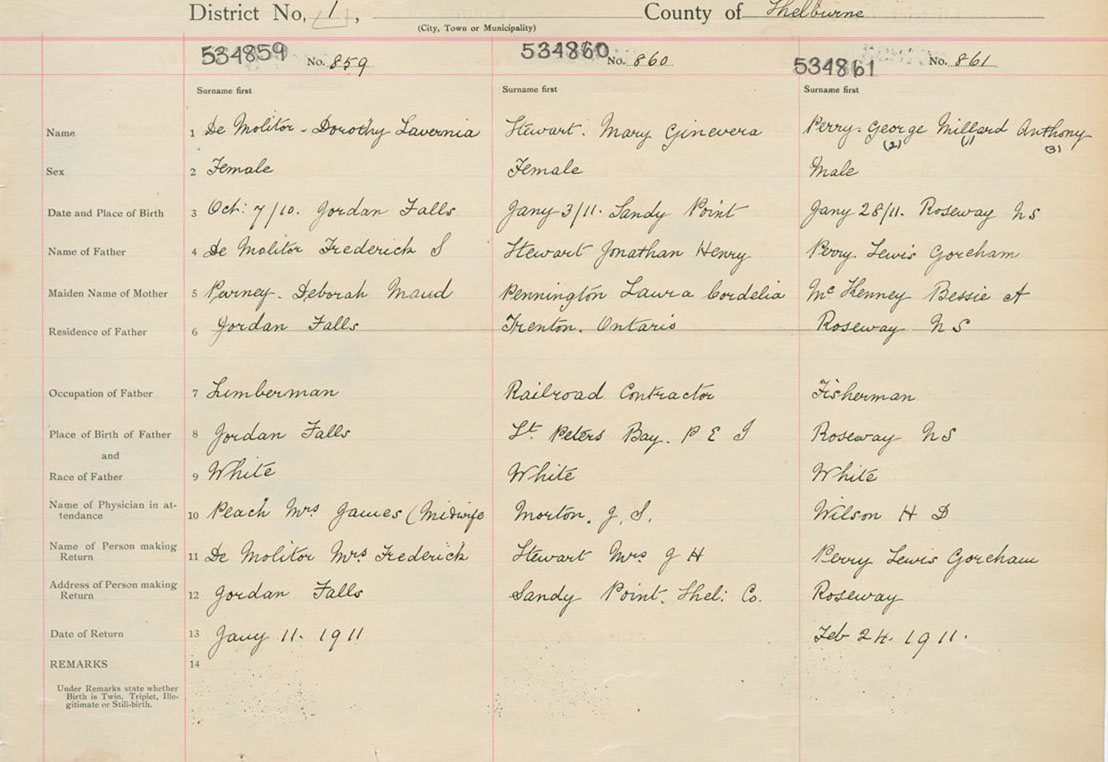 District No, 1, County of Shelburne
(City, Town or Municipality)
534859 No. 859 534860 No. 860 534861 No. 861
Surname first Surname first Surname first
Name 1 De Molitor - Dorothy Lavernia Stewart. Mary Ginevera Perry. George Millard Anthony
(2) (1) (3)
Sex 2 Female Female Male
Date and Place of Birth 3 Oct: 7/10. Jordan Falls Jany 3/11. Sandy Point Jany 28/11. Roseway N S
Name of Father 4 De Molitor Frederick S Stewart Jonathan Henry Perry. Lewis Goreham
Maiden Name of Mother 5 Parney. Deborah Maud Pennington Laura Cordelia McKenney Bessie A
Residence of Father 6 Jordan Falls Trenton. Ontario Roseway N S
Occupation of Father 7 Lumberman Railroad Contractor Fisherman
Place of Birth of Father 8 Jordan Falls St. Peters Bay. P E I Roseway N S
and
Race of Father 9 White White White
Name of Physician in at-
tendance 10 Peach Mrs James (Midwife Morton. J. S. Wilson H D
Name of Person making
Return 11 De Molitor Mrs Frederick Stewart Mrs J H Perry Lewis Goreham
Address of Person making
Return 12 Jordan Falls Sandy Point. Shel: Co. Roseway
Date of Return 13 Jany 11. 1911 Feb 24. 1911.
REMARKS 14
Under Remarks state whether
Birth is Twin, Triplet, Ille-
gitimate or Still-birth.